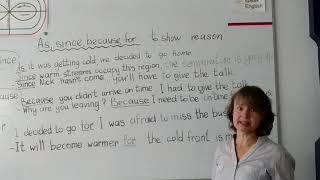 Speak
English
As, since, because, for to show reason
Since
As it was getting cold we decided to go home.
Since warm streams occupy this region, the temperature is
Since Nick hasn't come you'll have to give the talk.
Because you didn't arrive on time I had to give the talk
- Why are you leaving? Because I need be on time
I decided to go for I was afraid to miss the bus
- It will become warmer for the cold front is